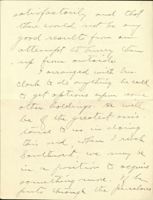 satisfactorily and that
there would not be any
good results from an
attempt to hurry them
up from outside.
I arranged with Mr.
Clark to do anything he could
to get options upon some
other holdings. He will
be of the greatest assis
tance to us in closing
this and, when I reach
Southwest we may be
in a position to acquire
something more. I
put through the purchase